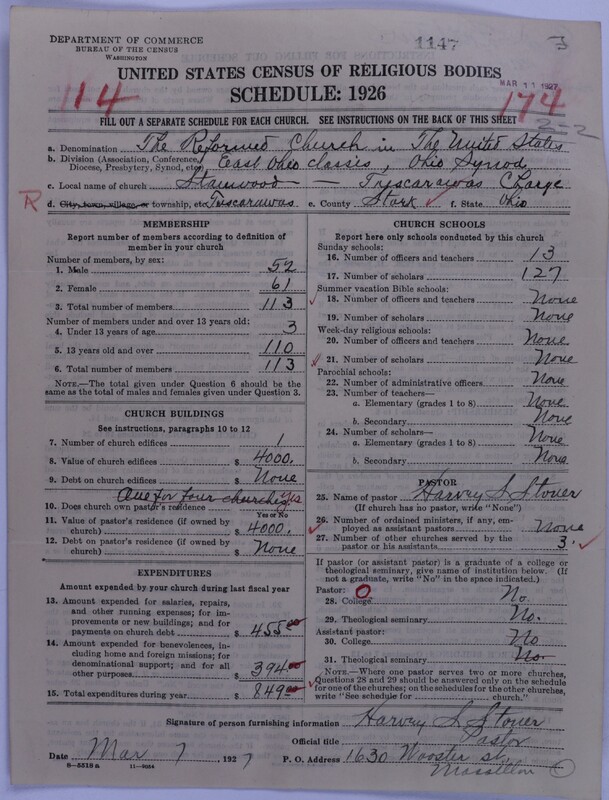 DEPARTMENT OF COMMERCE
BUREAU OF THE CENSUS
WASHINGTON
1147
3
UNITED STATES CENSUS OF RELIGIOUS BODIES
MAR 11 1927
114
SCHEDULE: 1926
174
FILL OUT A SEPARATE SCHEDULE FOR EACH CHURCH. SEE INSTRUCTIONS ON THE BACK OF THIS SHEET
222
a. Denomination The Reformed Church in The United States
b. Division (Association, Conference, Diocese, Presbytery, Synod, etc.) East Ohio Classis, Ohio Synod
c. Local name of church Stanwood — Tuscarawas Charge
R
d. City, town, village, or township, etc. Tuscarawas e. County Stark f. State Ohio
MEMBERSHIP
Report number of members according to definition of
member in your church
Number of members, by sex:
1. Male 52
2. Female 61
3. Total number of members 113
Number of members under and over 13 years old:
4. Under 13 years of age 3
5. 13 years old and over 110
6. Total number of members 113
NOTE.—The total given under Question 6 should be
same as the total of males and females given under Question 3.
CHURCH BUILDINGS
See instructions, paragraphs 10 to 12
7. Number of church edifices 1
8. Value of church edifices $ 4000.
9. Debt on church edifices $ None
One for four churches Yes
10. Does church own pastor's residence
Yes or No
11. Value of pastor's residence (if owned by
church) $ 4000.
12. Debt on pastor's residence (if owned by
church) $ None
EXPENDITURES
Amount expended by your church during last fiscal year
13. Amount expended for salaries, repairs,
and other running expenses; for im-
provements or new buildings; and for
payments on church debt $ 455.00
14. Amount expended for benevolences, in-
cluding home and foreign missions; for
denominational support; and for all
other purposes $ 394.00
15. Total expenditures during year $ 849.00
CHURCH SCHOOLS
Report here only schools conducted by this church
Sunday schools:
16. Number of officers and teachers 13
17. Number of scholars 127
Summer vacation Bible schools:
18. Number of officers and teachers None
19. Number of scholars None
Week-day religious schools:
20. Number of officers and teachers None
21. Number of scholars None
Parochial schools:
22. Number of administrative officers None
23. Number of teachers—
a. Elementary (grades 1 to 8) None
b. Secondary None
24. Number of scholars—
a. Elementary (grades 1 to 8) None
b. Secondary None
PASTOR
25. Name of pastor Harvey S. Stoner
(If church has no pastor, write "None")
26. Number of ordained ministers, if any, em-
ployed as assistant pastors None
27. Number of other churches served by the
pastor or his assistants 3.
If pastor (or assistant pastor) is a graduate of a college or
theological seminary, give name of institution below. (If
not a graduate, write "No" in the space indicated.)
Pastor:
28. College No.
29. Theological seminary No.
Assistant pastor:
30. College No
31. Theological seminary No
NOTE.—Where one pastor serves two or more churches,
Questions 28 and 29 should be answered only on the schedule
for one of the churches; on the schedules for the other churches,
write "See schedule for church."
Signature of person furnishing information Harvey S. Stoner
Official title Pastor
Date Mar 7 1927 P. O. Address 1630 Wooster st.
Massillon
8—5519a 11—9034